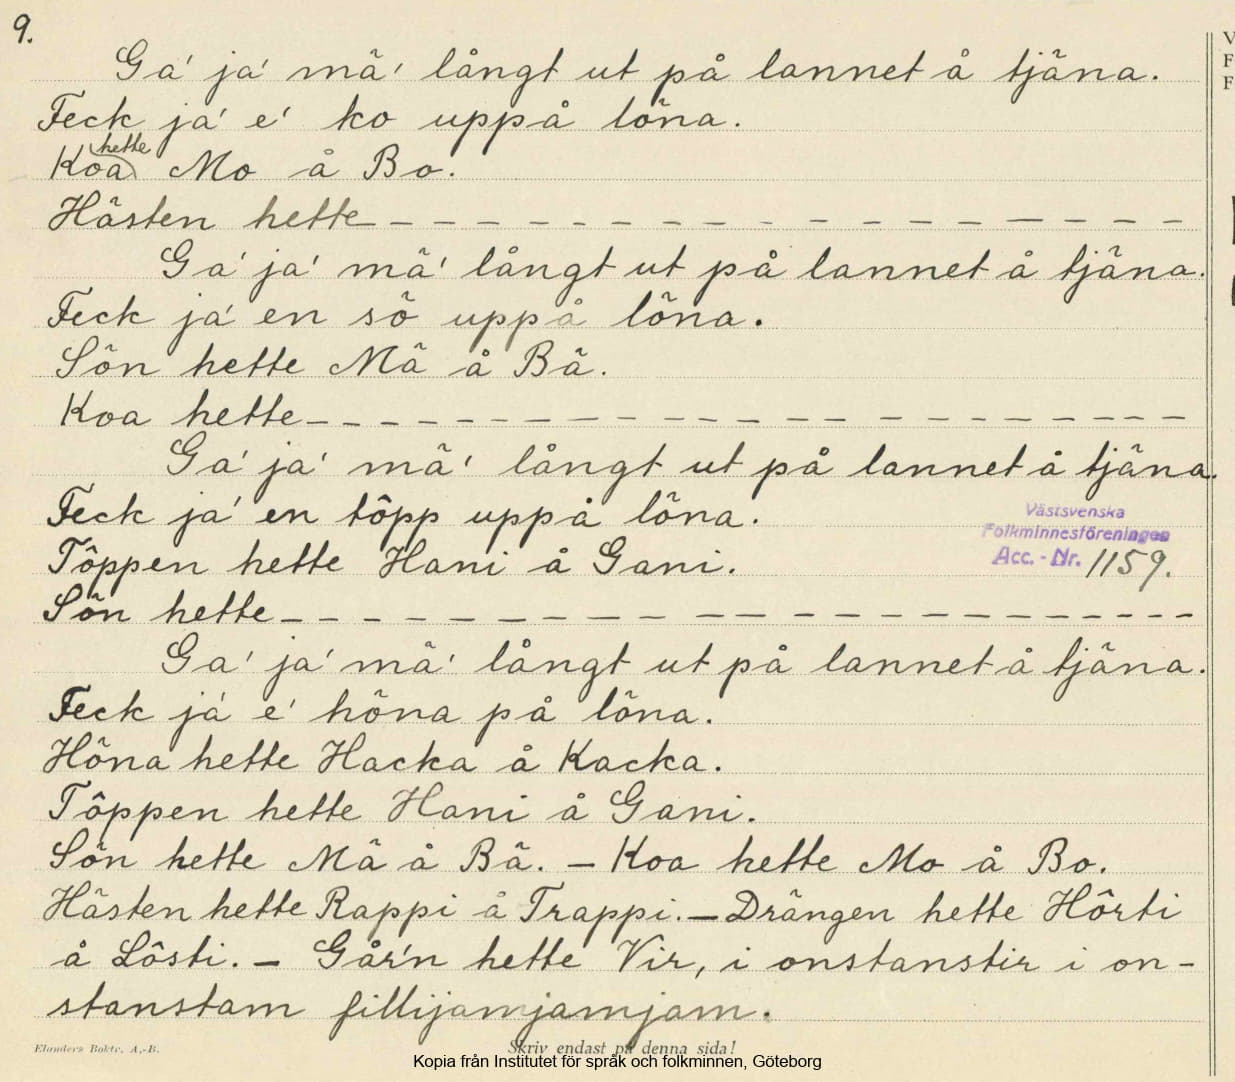 9.
Ga' ja' mä' långt ut på lannet å tjäna.
Feck ja' e' ko uppå löna.
hette
Koa Mo å Bo.
Hästen hette – – – – – – – – – – – – – – – –
Ga' ja' mä' långt ut på lannet å tjäna.
Feck ja' en sö uppå löna.
Sön hette Mä å Bä.
Koa hette – – – – – – – – – – – – – – – – – –
Ga' ja' mä' långt ut på lannet å tjäna.
Feck ja' en töpp uppå löna.
Töppen hette Hani å Gani.
Sön hette – – – – – – – – – – – – – – – – – – –
Ga' ja' mä' långt ut på lannet å tjäna.
Feck ja' e' höna på löna.
Höna hette Hacka å Kacka.
Töppen hette Hani å Gani.
Sön hette Mä å Bä. – Koa hette Mo å Bo.
Hästen hette Rappi å Trappi. – Drängen hette Hörti
å Lösti. – Går'n hette Vir, i onstanstir i on-
stanstam fillijamjamjam.
Västsvenska
Folkminnesföreningen
Acc. - Nr. 1159.
V
F
F
Elanders Boktr. A.-B.
Skriv endast på denna sida!
Kopia från Institutet för språk och folkminnen, Göteborg